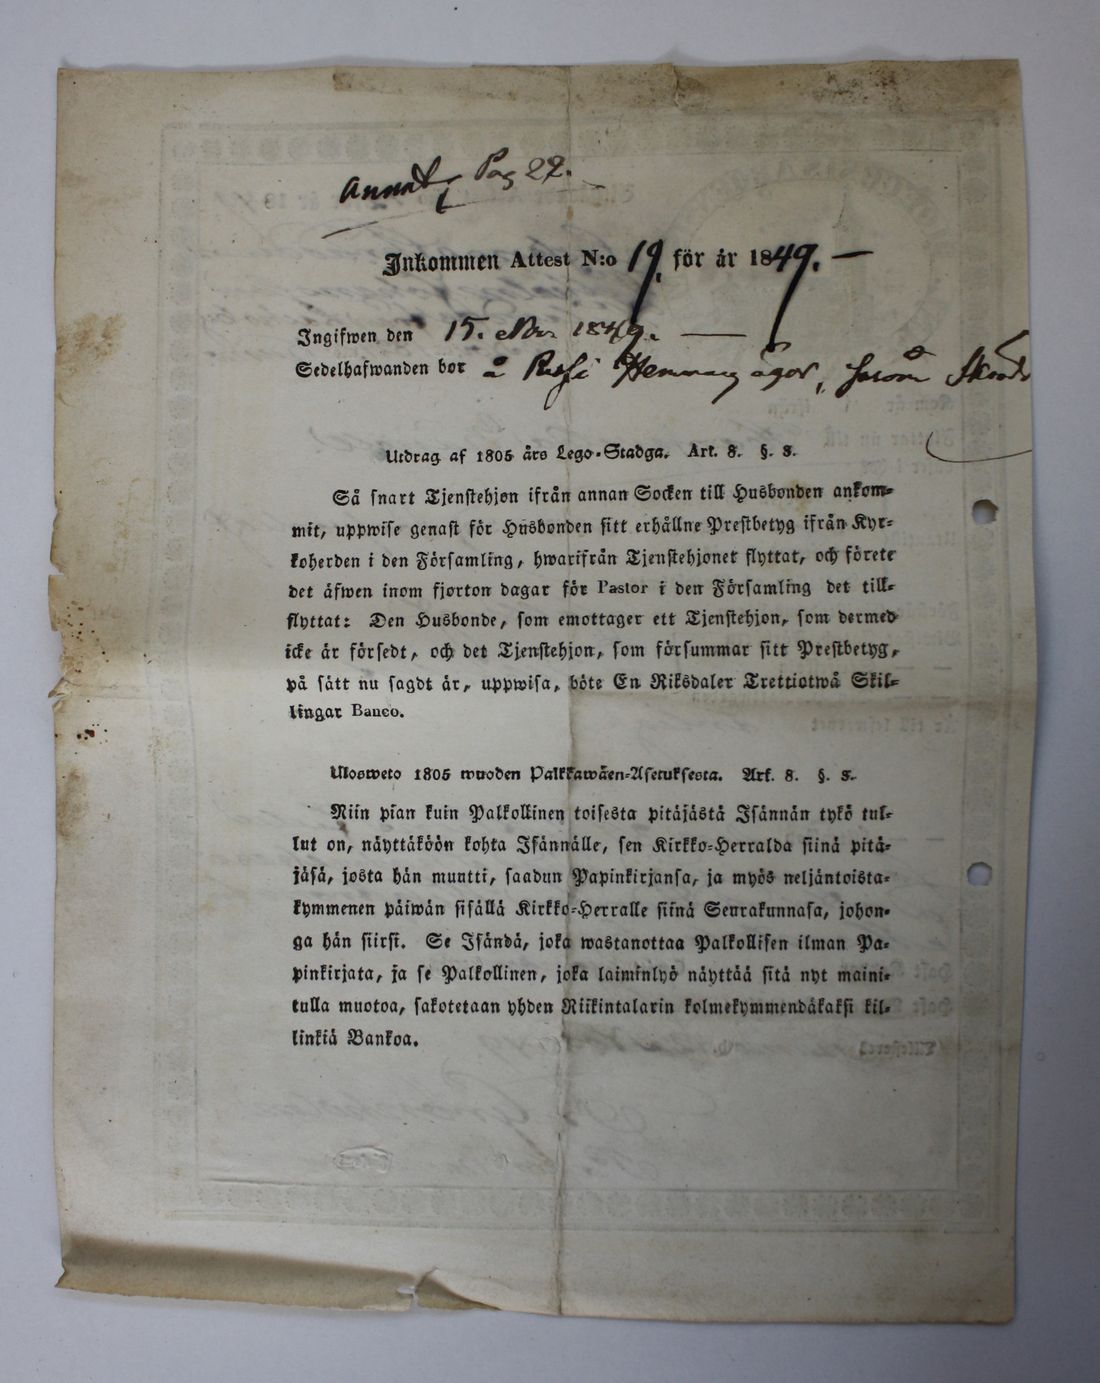 Annot. Pag 22.
Inkommen Attest N:o 19. för år 1849. —
Ingifwen den 15. Nov. 1849. —
Sedelhafwanden bor å
Utdrag af 1805 års Lego-Stadga. Art. 8. §. 3.
Så snart Tjenstehjon ifrån annan Socken till Husbonden ankom-
mit, uppwise genast för Husbonden sitt erhållne Prestbetyg ifrån Kyr-
koherden i den Församling, hwarifrån Tjenstehjonet flyttat, och förete
det äfwen inom fjorton dagar för Pastor i den Församling det till-
flyttat: Den Husbonde, som emottager ett Tjenstehjon, som dermed
icke är försedt, och det Tjenstehjon, som försummar sitt Prestbetyg,
på sätt nu sagdt är, uppwisa, böte En Riksdaler Trettiotwå Skil-
lingar Banco.
Ulosweto 1805 wuoden Palkkawäen-Asetuksesta. Art. 8. §. 3.
Niin pian kuin Palkollinen toisesta pitäjästä Isännän tykö tul-
lut on, näyttäköön kohta Isännälle, sen Kirkko-Herralda siinä pitä-
jäsä, josta hän muutti, saadun Papinkirjansa, ja myös neljäntoista-
kymmenen päiwän sisällä Kirkko-Herralle siinä Seurakunnasa, johon-
ga hän siirsi. Se Isändä, joka wastanottaa Palkollisen ilman Pa-
pinkirjata, ja se Palkollinen, joka laiminlyö näyttää sitä nyt maini-
tulla muotoa, sakotetaan yhden Riikintalarin kolmekymmendäkaksi kil-
linkiä Bankoa.